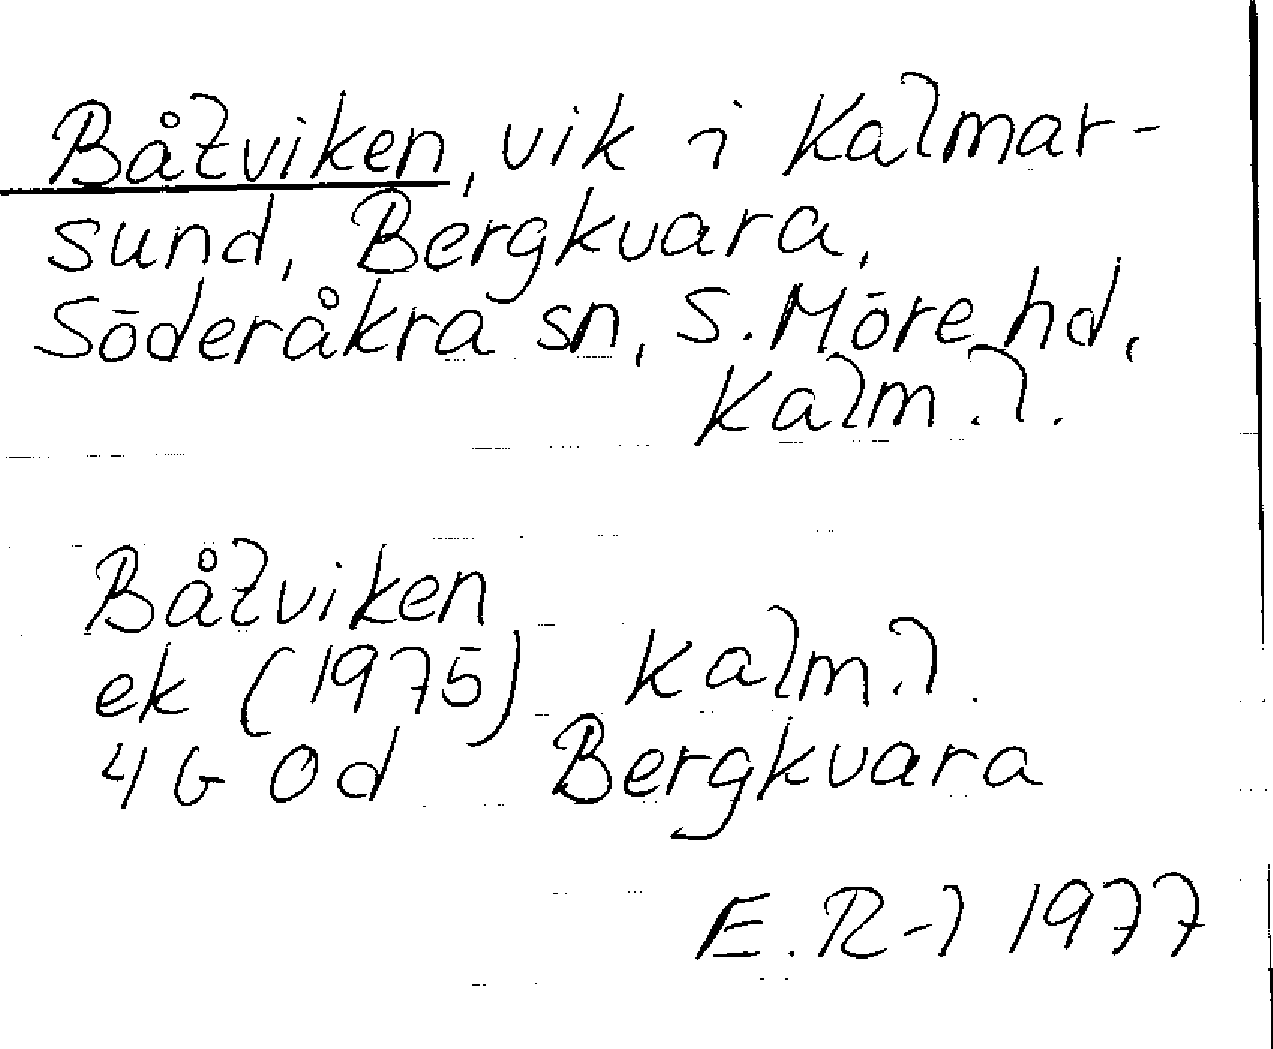 Båtviken, vik i Kalmar-
sund, Bergkvara,
Söderåkra sn, S. Möre hd,
Kalm. l.
Båtviken
ek (1975) Kalm. l.
4G Od Bergkvara
E. R-l 1977